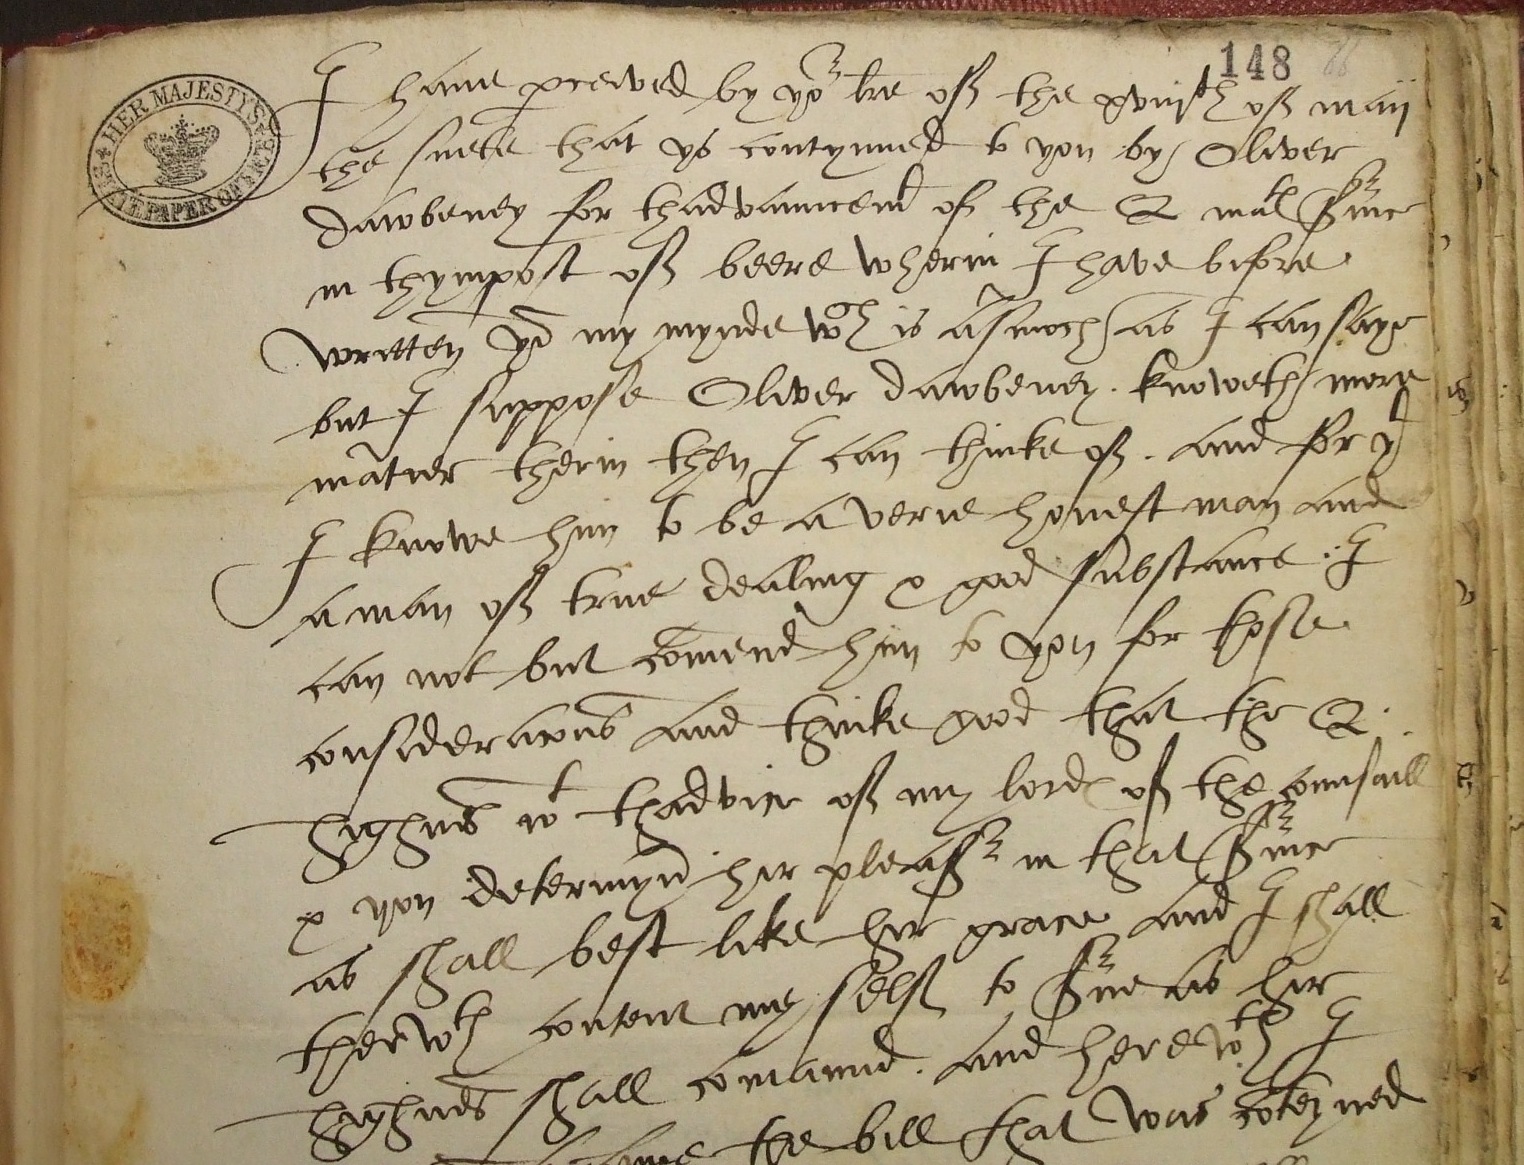 148
HER MAJESTY'S STATE PAPER OFFICE
I have pceived by yor lre off the xviijth off maij
the suete that ys contynned to you by Oliver
Dawbeney for thadvauncemt of the Q matl Svuice
in thympost off beere wherin I have bifore
written yo my mynde wch is asmoch as I can saye
but I suppose Oliver Dawbeney knoweth more
matier therin then I can thinke off . and for yt
I knowe him to be a verie honest man and
a man off true dealing & good substance . I
can not but comend him to you for those
consideracons and thinke good that the Q .
highnes wt thadvice off my lordes off the counsaill
& you determyn hir pleasr in that Svuice
as shall best like hir grace and I shall
therwth content my self to Srue as hir
highnes shall comaund . and herewth I
the bill that was coteyned